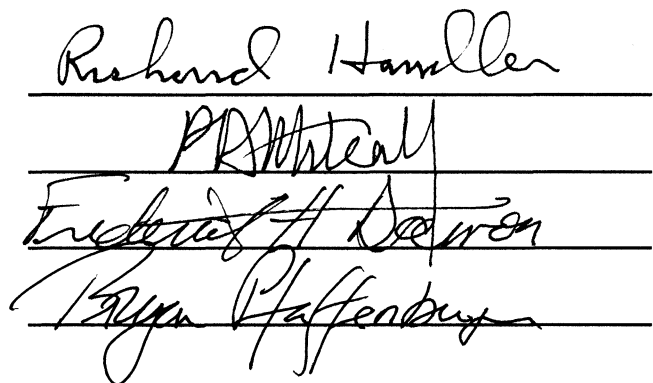 Richard Handler
P D Metcalf
Frederick H Damon
Bryan Pfaffenberger